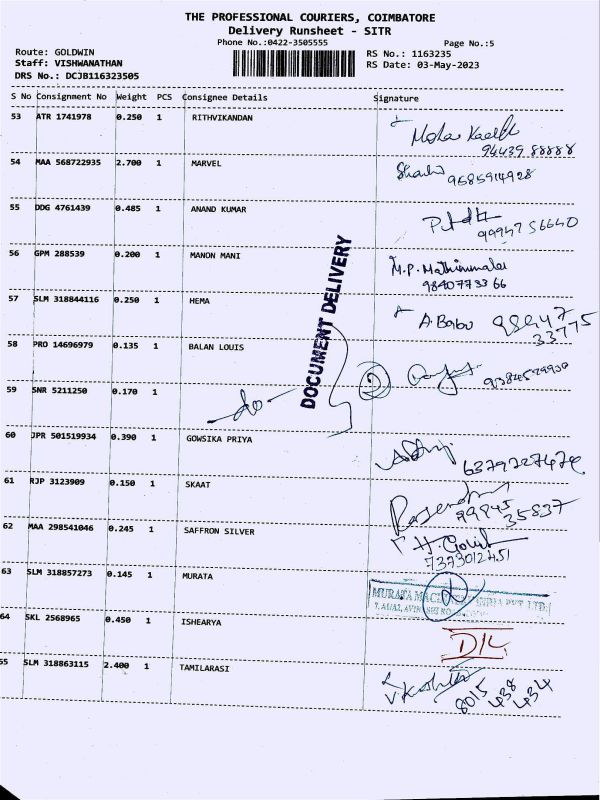 THE PROFESSIONAL COURIERS, COIMBATORE
Delivery Runsheet - SITR
Phone No.:0422-3505555 Page No.:5
Route: GOLDWIN RS No.: 1163235
Staff: VISHWANATHAN RS Date: 03-May-2023
DRS No.: DCJB116323505
S No Consignment No Weight PCS Consignee Details Signature
53 ATR 1741978 0.250 1 RITHVIKANDAN
94439 88888
54 MAA 568722935 2.700 1 MARVEL
9585914928
55 DDG 4761439 0.485 1 ANAND KUMAR
99947 56640
56 GPM 288539 0.200 1 MANON MANI M.P.
98407733 66
57 SLM 318844116 0.250 1 HEMA A. Babu 98947
33775
58 PRO 14696979 0.135 1 BALAN LOUIS
DOCUMENT DELIVERY
59 SNR 5211250 0.170 1 -do-
60 JPR 501519934 0.390 1 GOWSIKA PRIYA
61 RJP 3123909 0.150 1 SKAAT
99945 35837
62 MAA 298541046 0.245 1 SAFFRON SILVER
7373012451
63 SLM 318857273 0.145 1 MURATA
MURATA MACHINERY INDIA PVT. LTD.
64 SKL 2568965 0.450 1 ISHEARYA D/L
65 SLM 318863115 2.400 1 TAMILARASI
8015 438 434